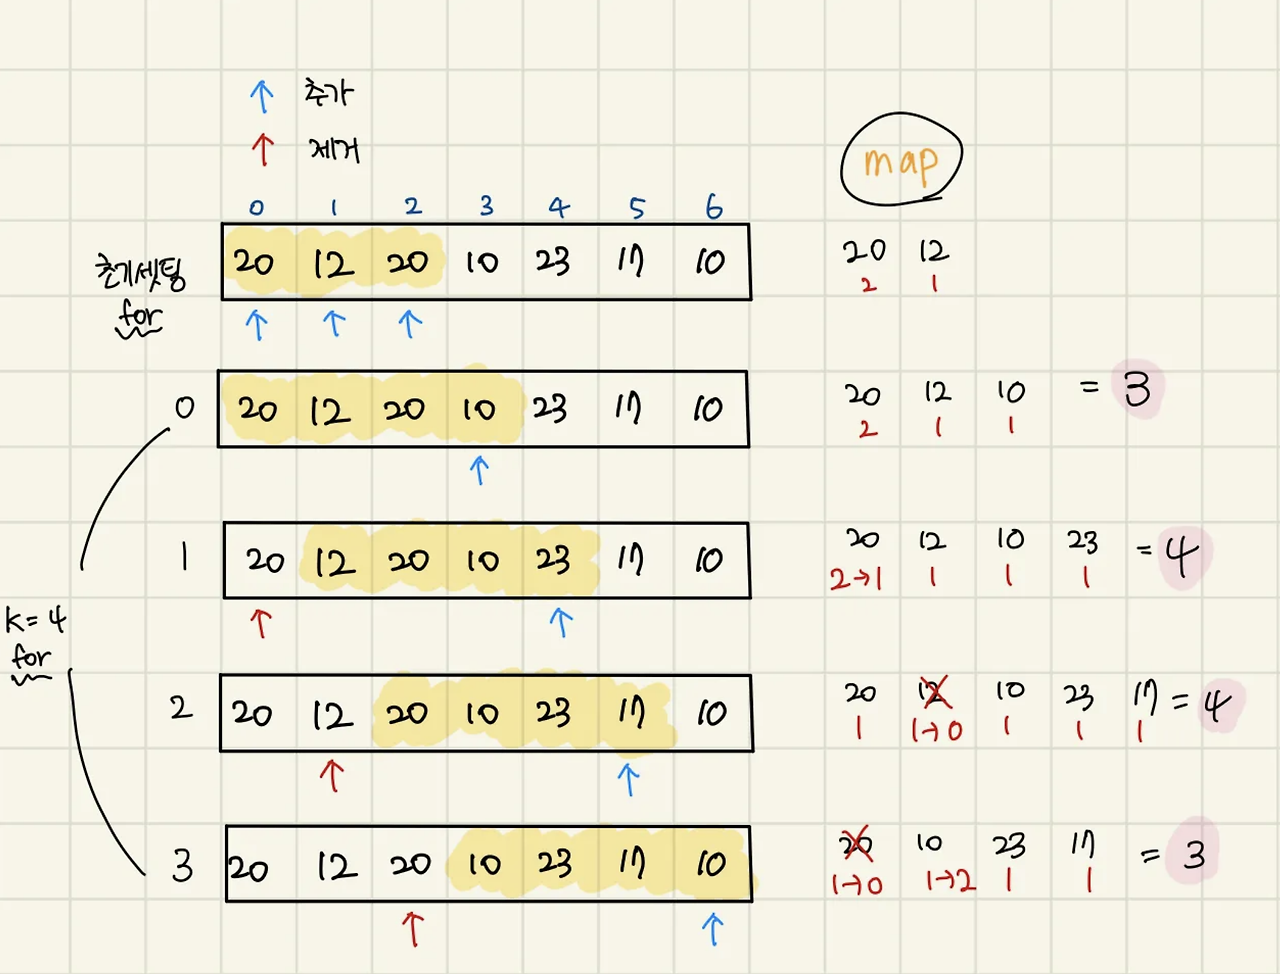 ↑ 추가
↑ 제거
map
0 1 2 3 4 5 6
초기셋팅
for
20 12 20 10 23 17 10
20 12
2 1
↑ ↑ ↑
0
20 12 20 10 23 17 10
20 12 10 = 3
2 1 1
↑
1
20 12 20 10 23 17 10
20 12 10 23 = 4
2→1 1 1 1
↑ ↑
k=4
for
2
20 12 20 10 23 17 10
20 12 10 23 17 = 4
1 1→0 1 1 1
↑ ↑
3
20 12 20 10 23 17 10
20 10 23 17 = 3
1→0 1→2 1 1
↑ ↑